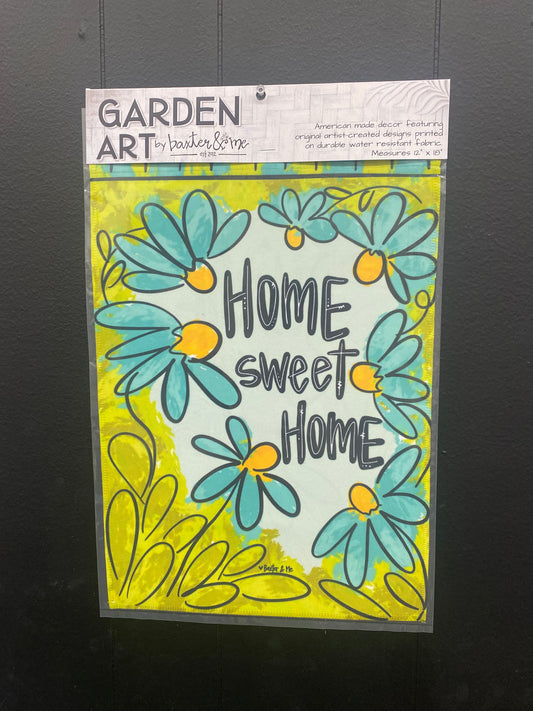 GARDEN
ART by baxter & me
est 2012
American made decor featuring
original artist-created designs printed
on durable water resistant fabric.
Measures 12" x 18"
HOME
sweet
HOME
Baxter & Me